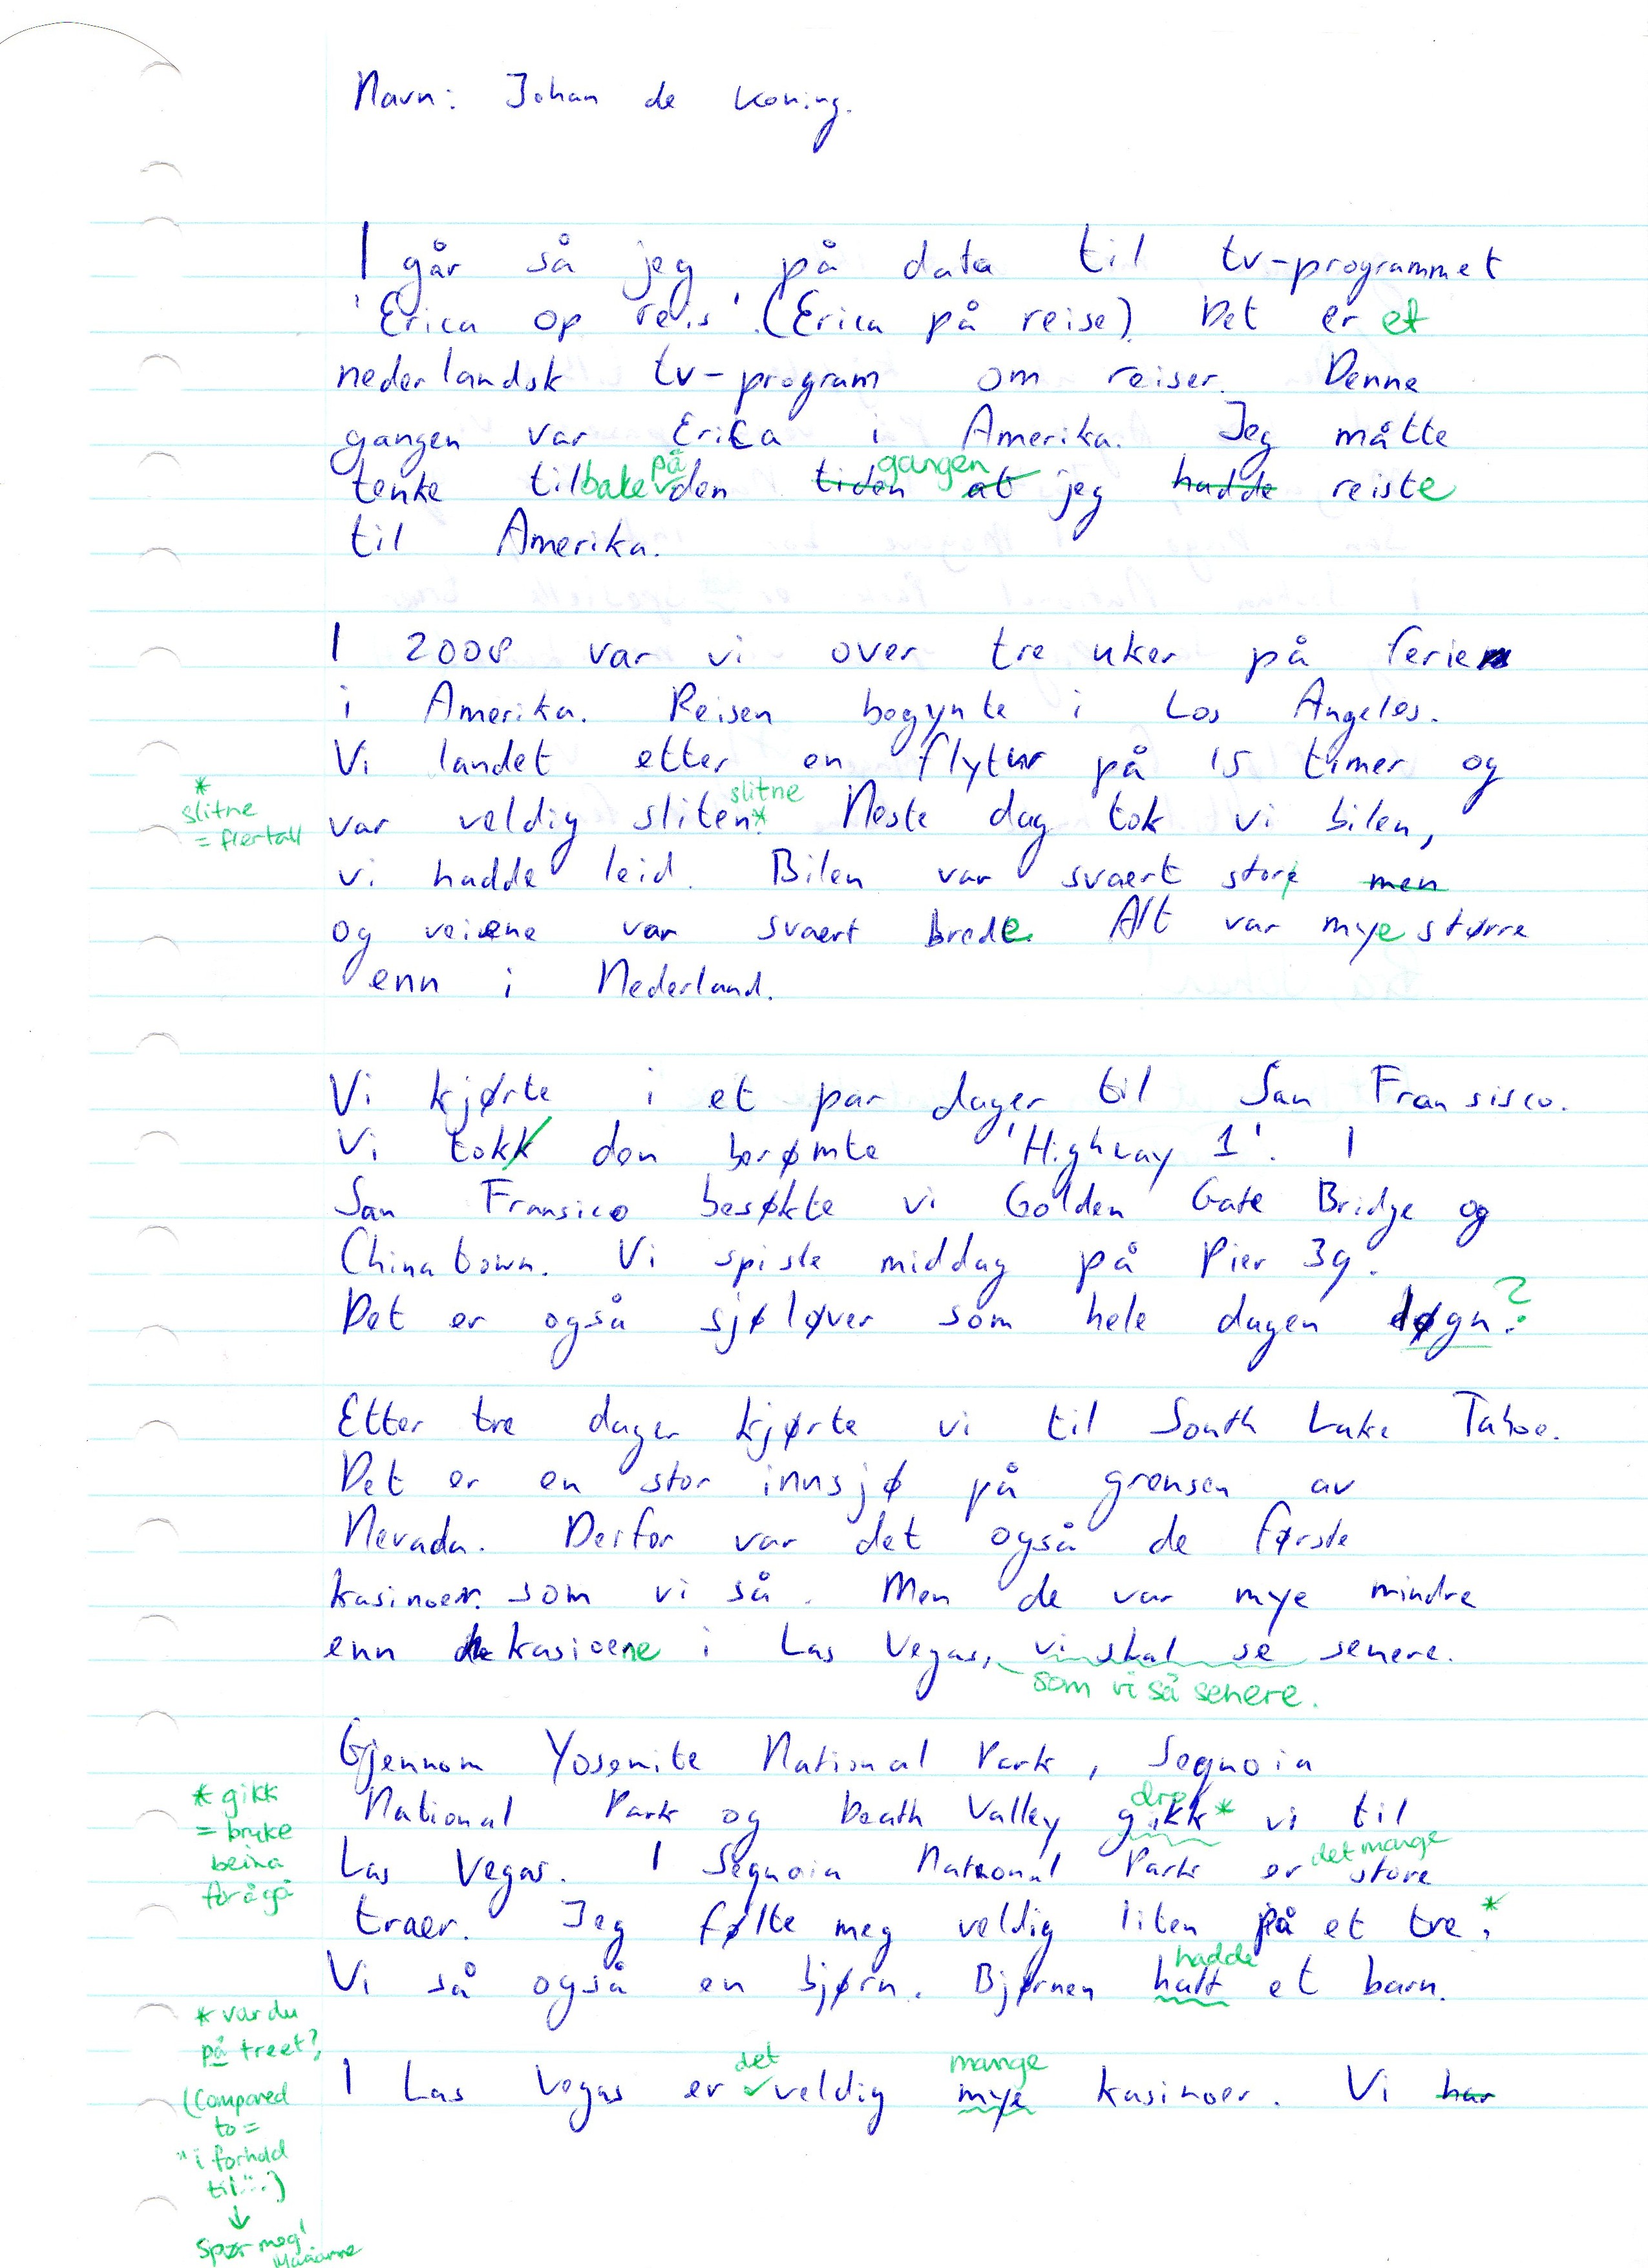 Navn: Johan de Koning.
I går så jeg på data til tv-programmet
'Erica op reis' (Erica på reise). Det er et
nederlandsk tv-program om reiser. Denne
gangen var Erica i Amerika. Jeg måtte
på gangen
tenke tilbake den tiden at jeg hadde reiste
til Amerika.
I 2008 var vi over tre uker på ferie
i Amerika. Reisen begynte i Los Angeles.
Vi landet etter en flytur på 15 timer og
* slitne = flertall
slitne
var veldig sliten.* Neste dag tok vi bilen,
vi hadde leid. Bilen var svaert store men
og veiene var svaert brede. Alt var mye større
enn i Nederland.
Vi kjørte i et par dager til San Fransisco.
Vi tokk den berømte 'Highway 1'. I
San Fransico besøkte vi Golden Gate Bridge og
Chinatown. Vi spiste middag på Pier 39.
Det er også sjøløver som hele dagen løgn. ?
Etter tre dager kjørte vi til South Lake Tahoe.
Det er en stor innsjø på grensen av
Nevada. Derfor var det også de første
kasinoer. som vi så. Men de var mye mindre
enn kasioene i Las Vegas, vi skal se senere.
som vi så senere.
Gjennom Yosemite National Park, Seqnoia
dro
National Park og Death Valley gikk* vi til
* gikk
= bruke
beina
for å gå
det mange
Las Vegas. I Seqnoia National Park er store
traer. Jeg følte meg veldig liten på et tre.*
hadde
Vi så også en bjørn. Bjørnen hatt et barn.
* var du
på treet?
(Compared
to =
"i forhold
til"...)
↓
Spør meg!
Marianne
det mange
I Las Vegas er veldig mye kasinoer. Vi har